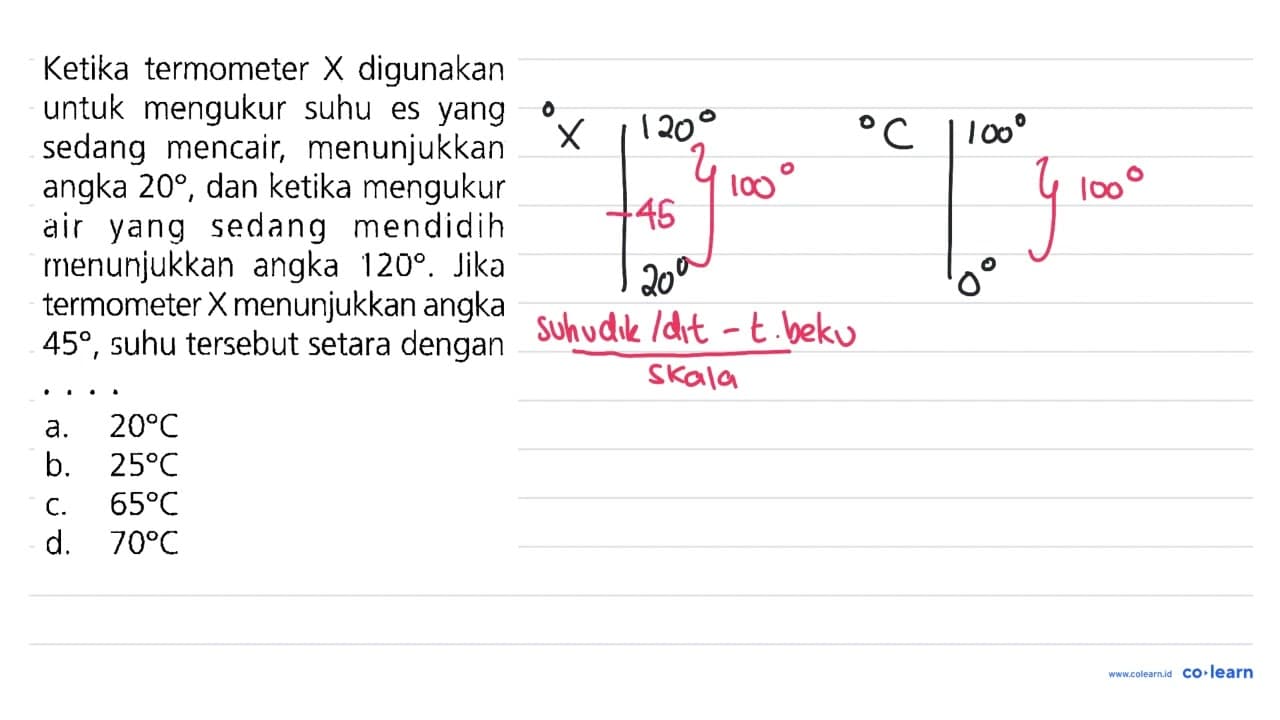 Ketika termometer X digunakan
untuk mengukur suhu es yang
sedang mencair, menunjukkan
angka 20°, dan ketika mengukur
air yang sedang mendidih
menunjukkan angka 120°. Jika
termometer X menunjukkan angka
45°, suhu tersebut setara dengan
. . . .
a. 20°C
b. 25°C
c. 65°C
d. 70°C
°X 120°
100°
45
20°
°C 100°
100°
0°
suhu dik / dit - t. beku
skala
www.colearn.id co·learn